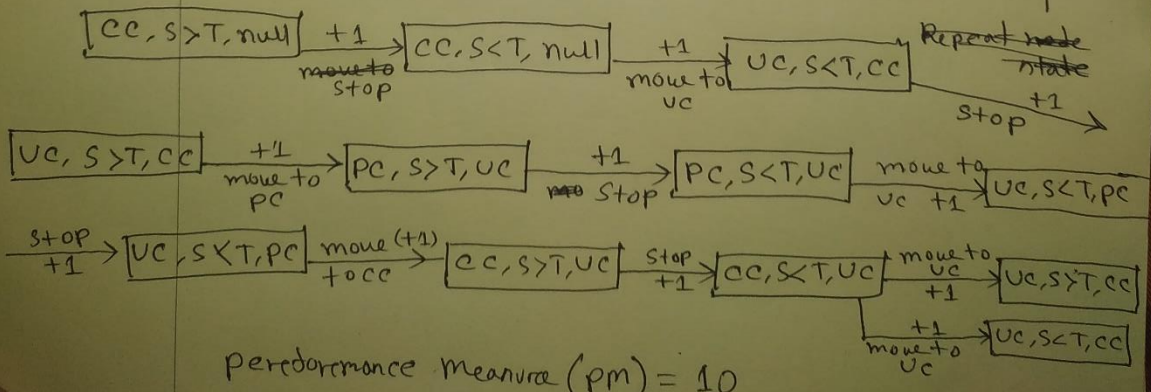 CC, S>T, null +1 move to stop CC, S<T, null +1 move to UC UC, S<T, CC Repeat node state stop +1
UC, S>T, CC +1 move to PC PC, S>T, UC +1 Stop PC, S<T, UC move to UC +1 UC, S<T, PC
stop +1 UC, S<T, PC move (+1) to CC CC, S>T, UC Stop +1 CC, S<T, UC move to UC +1 UC, S>T, CC
+1 move to UC UC, S<T, CC
peredormance meanure (pm) = 10